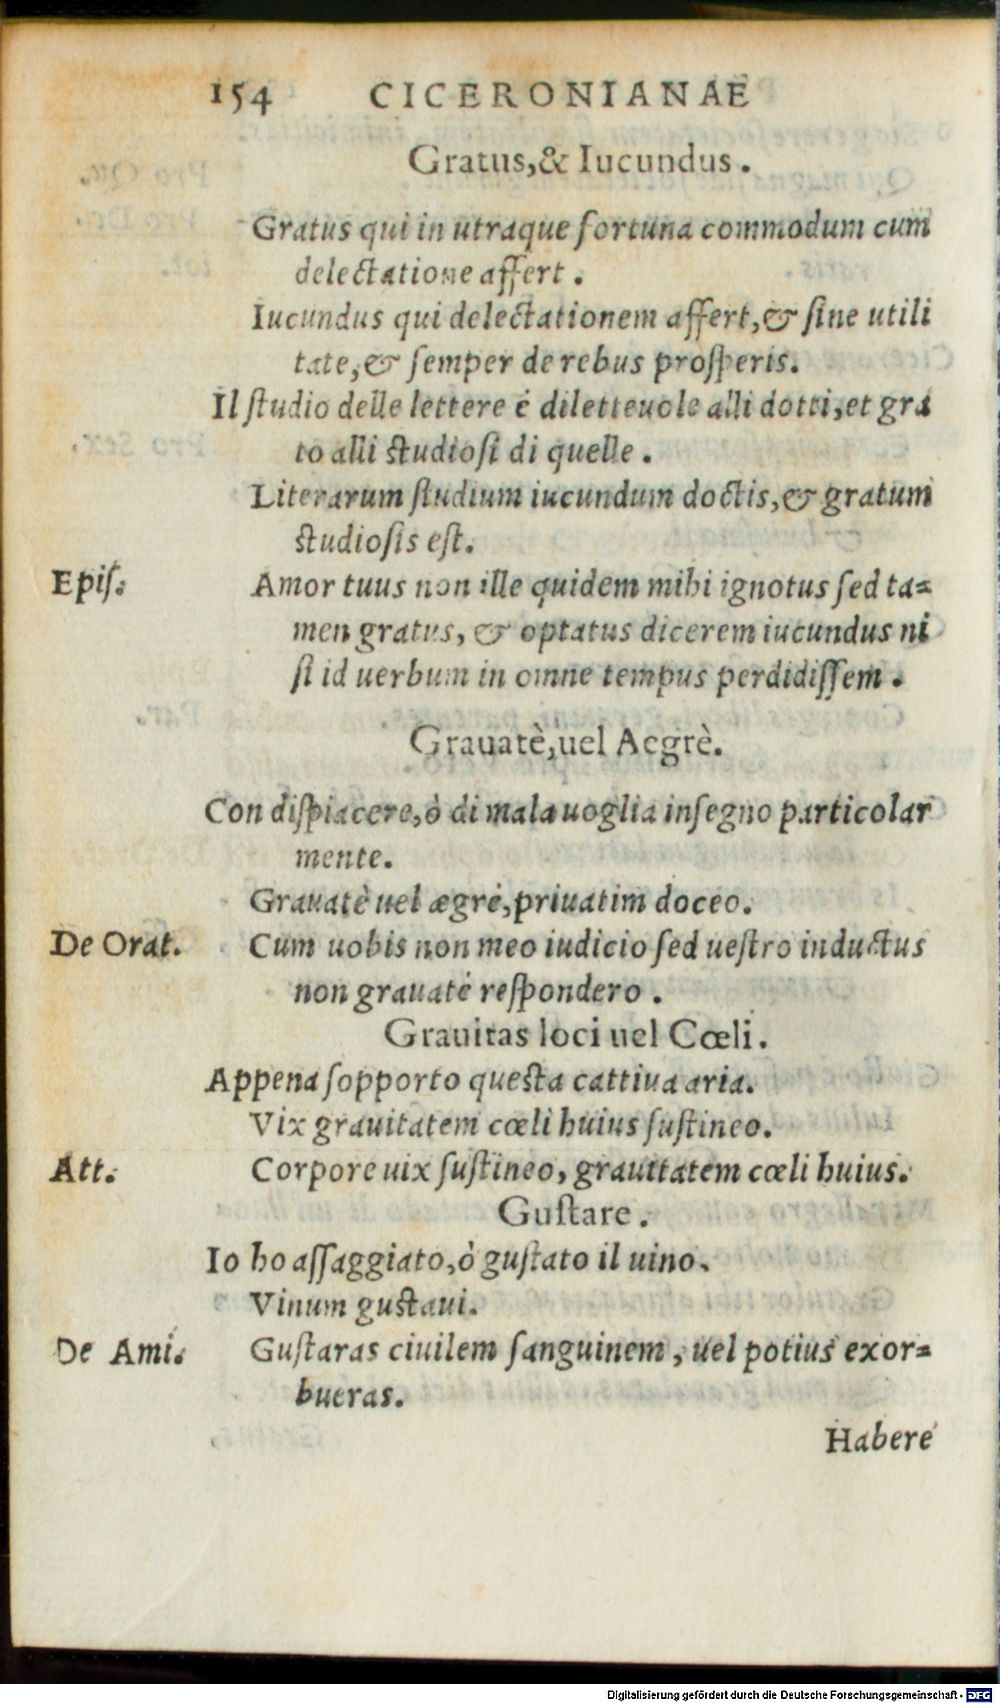 154 CICERONIANAE
Gratus,& Iucundus.
Gratus qui in utraque fortuna commodum cum
delectatione affert.
Iucundus qui delectationem affert,& sine utili
tate,& semper de rebus prosperis.
Il studio delle lettere è diletteuole alli dotti,et gra
to alli studiosi di quelle.
Literarum studium iucundum doctis,& gratum
studiosis est.
Epis. Amor tuus non ille quidem mihi ignotus sed ta=
men gratus, & optatus dicerem iucundus ni
si id uerbum in omne tempus perdidissem.
Grauatè,uel Aegrè.
Con dispiacere,ò di mala uoglia insegno particolar
mente.
Grauatè uel ægrè,priuatim doceo.
De Orat. Cum uobis non meo iudicio sed uestro inductus
non grauatè respondero.
Grauitas loci uel Cœli.
Appena sopporto questa cattiua aria.
Vix grauitatem cœli huius sustineo.
Att. Corpore uix sustineo, grauitatem cœli huius.
Gustare.
Io ho assaggiato,ò gustato il uino.
Vinum gustaui.
De Ami. Gustaras ciuilem sanguinem, uel potius exor=
bueras.
Habere
Digitalisierung gefördert durch die Deutsche Forschungsgemeinschaft - DFG